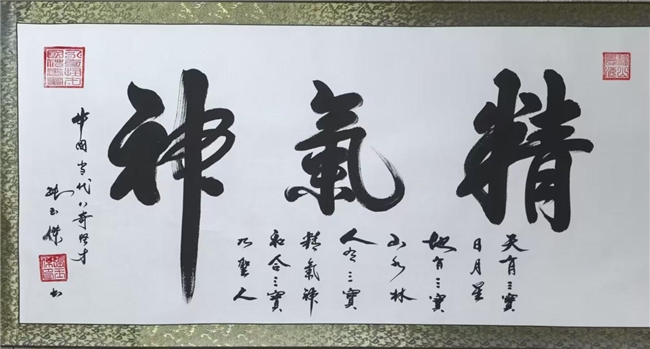 精氣神
天有三寶
日月星
地有三寶
山水林
人有三寶
精氣神
和合三寶
乃聖人
中国当代八奇才
玉傑
书